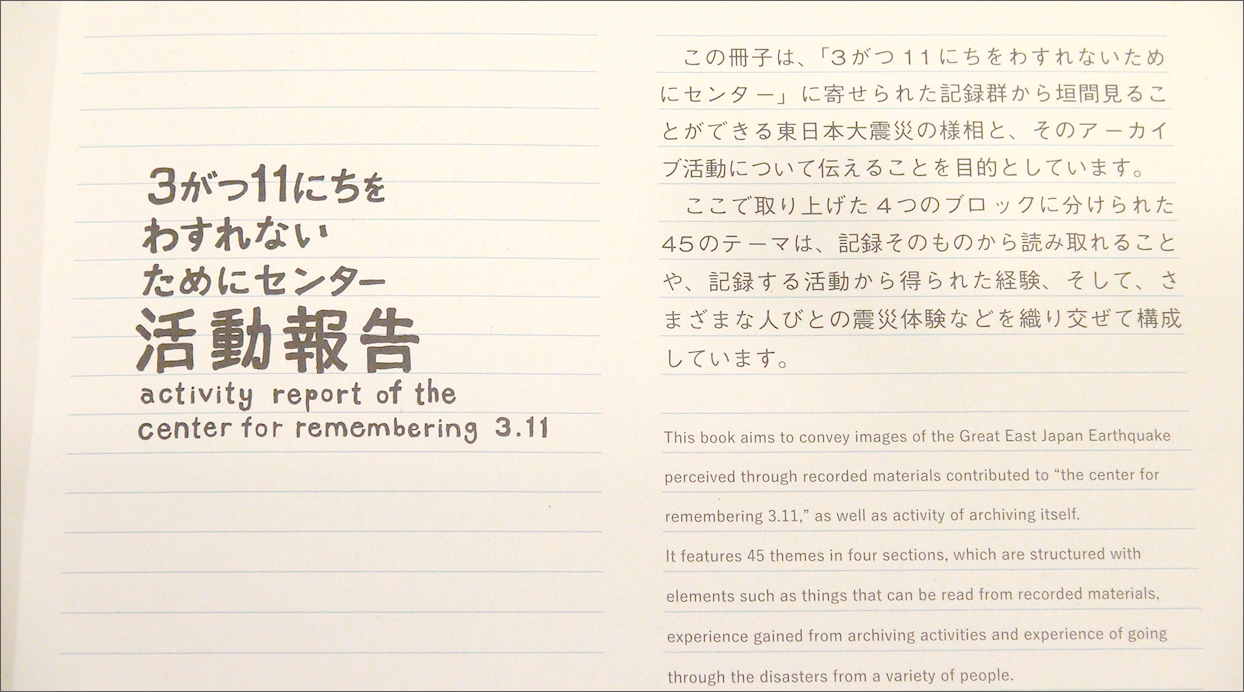 3がつ11にちを
わすれない
ためにセンター
活動報告
activity report of the
center for remembering 3.11
この冊子は、「3がつ11にちをわすれないため
にセンター」に寄せられた記録群から垣間見るこ
とができる東日本大震災の様相と、そのアーカイ
ブ活動について伝えることを目的としています。
ここで取り上げた4つのブロックに分けられた
45のテーマは、記録そのものから読み取れること
や、記録する活動から得られた経験、そして、さ
まざまな人びとの震災体験などを織り交ぜて構成
しています。
This book aims to convey images of the Great East Japan Earthquake
perceived through recorded materials contributed to “the center for
remembering 3.11,” as well as activity of archiving itself.
It features 45 themes in four sections, which are structured with
elements such as things that can be read from recorded materials,
experience gained from archiving activities and experience of going
through the disasters from a variety of people.